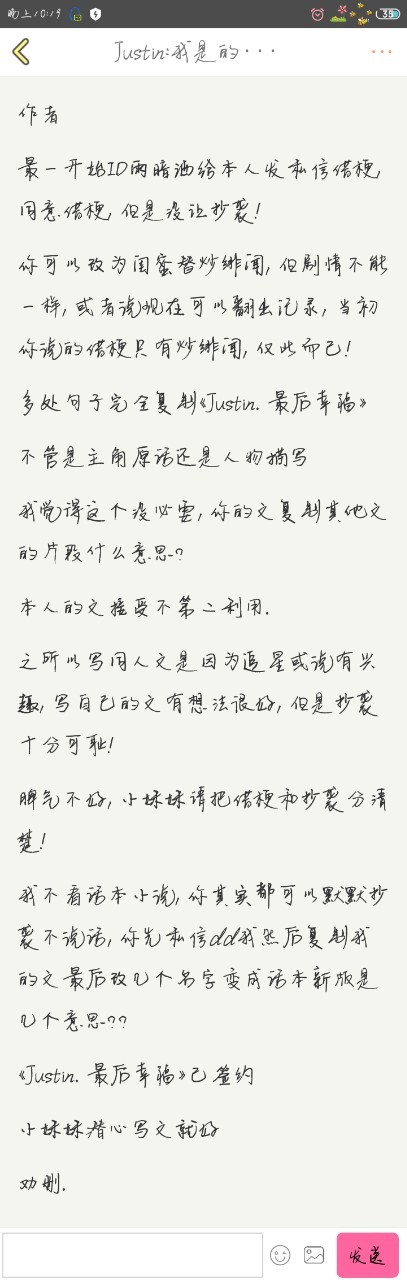 晚上10:19
35
Justin:我是的···
作者
最一开始ID两暗洒给本人发私信借梗,
同意借梗,但是没让抄袭!
你可以改为闺蜜替炒绯闻,但剧情不能
一样,或者说现在可以翻出记录,当初
你说的借梗只有炒绯闻,仅此而已!
多处句子完全复制《Justin. 最后幸福》
不管是主角原话还是人物描写
我觉得这个没必要,你的文复制其他文
的片段什么意思?
本人的文接受不第二利用.
之所以写同人文是因为追星或说有兴
趣,写自己的文有想法很好,但是抄袭
十分可耻!
脾气不好,小妹妹请把借梗和抄袭分清
楚!
我不看话本小说,你其实都可以默默抄
袭不说话,你先私信dd我然后复制我
的文最后改几个名字变成话本新版是
几个意思??
《Justin. 最后幸福》已签约
小妹妹潜心写文就好
劝删.
发送